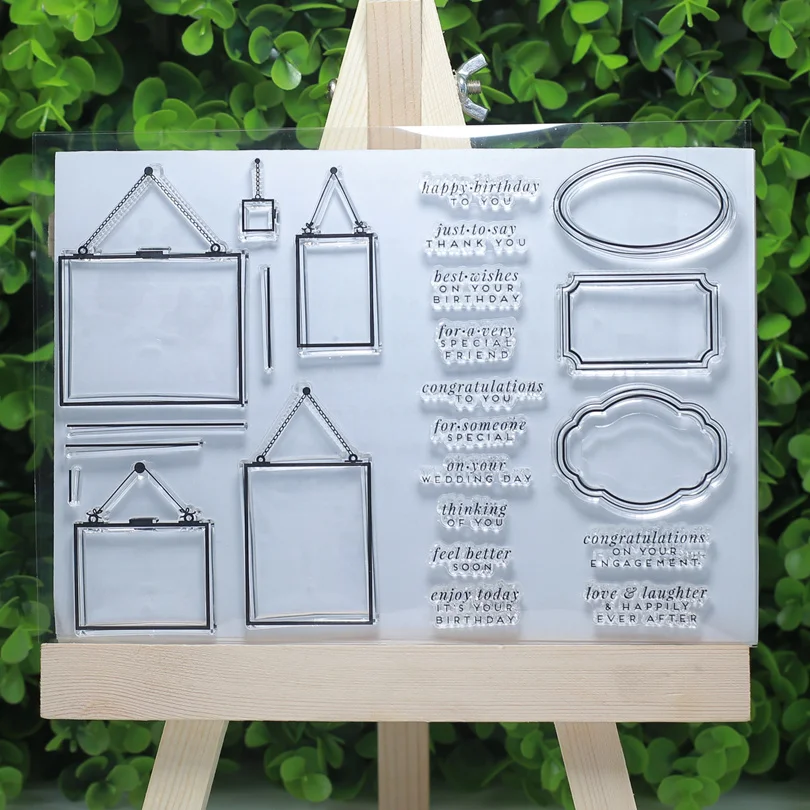 happy·birthday
TO YOU
just·to·say
THANK YOU
best·wishes
ON YOUR
BIRTHDAY
for·a·very
SPECIAL
FRIEND
congratulations
TO YOU
for·someone
SPECIAL
on·your
WEDDING DAY
thinking
OF YOU
feel better
SOON
enjoy today
IT'S YOUR
BIRTHDAY
congratulations
ON YOUR
ENGAGEMENT
love & laughter
& HAPPILY
EVER AFTER